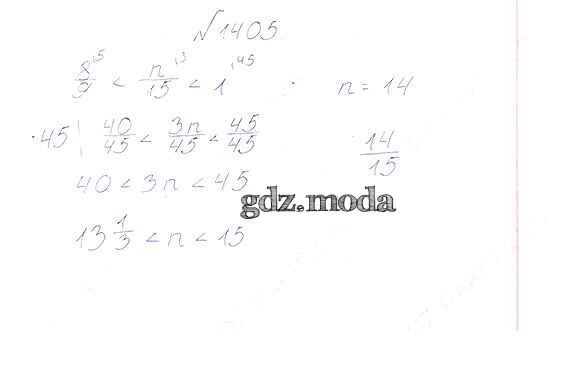 №1405
8/9 ·5 < n/15 ·3 < 1 ·45
n = 14
·45 | 40/45 < 3n/45 < 45/45
14/15
40 < 3n < 45
gdz.moda
13 1/3 < n < 15